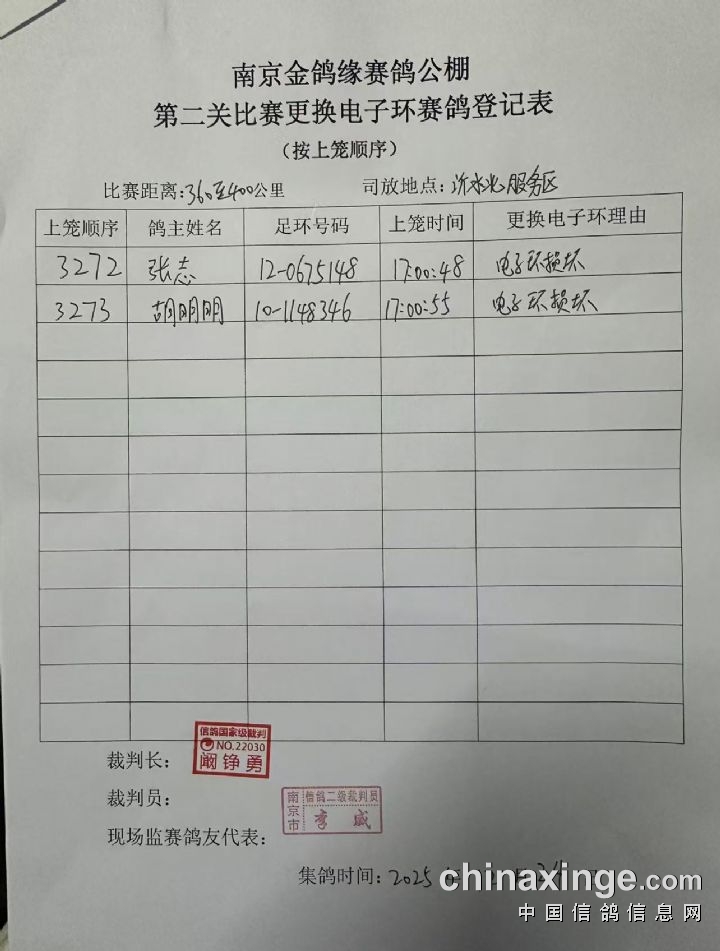 南京金鸽缘赛鸽公棚
第二关比赛更换电子环赛鸽登记表
（按上笼顺序）
比赛距离:360至400公里 司放地点: 沂水北服务区
上笼顺序 鸽主姓名 足环号码 上笼时间 更换电子环理由
3272 张志 12-0675148 17:00:48 电子环损坏
3273 胡明明 10-1148346 17:00:55 电子环损坏
裁判长：
信鸽国家级裁判
NO.22030
阚铮勇
裁判员：
南京市 信鸽二级裁判员
李威
现场监赛鸽友代表：
集鸽时间: 2025
chinaxinge.com
中国信鸽信息网